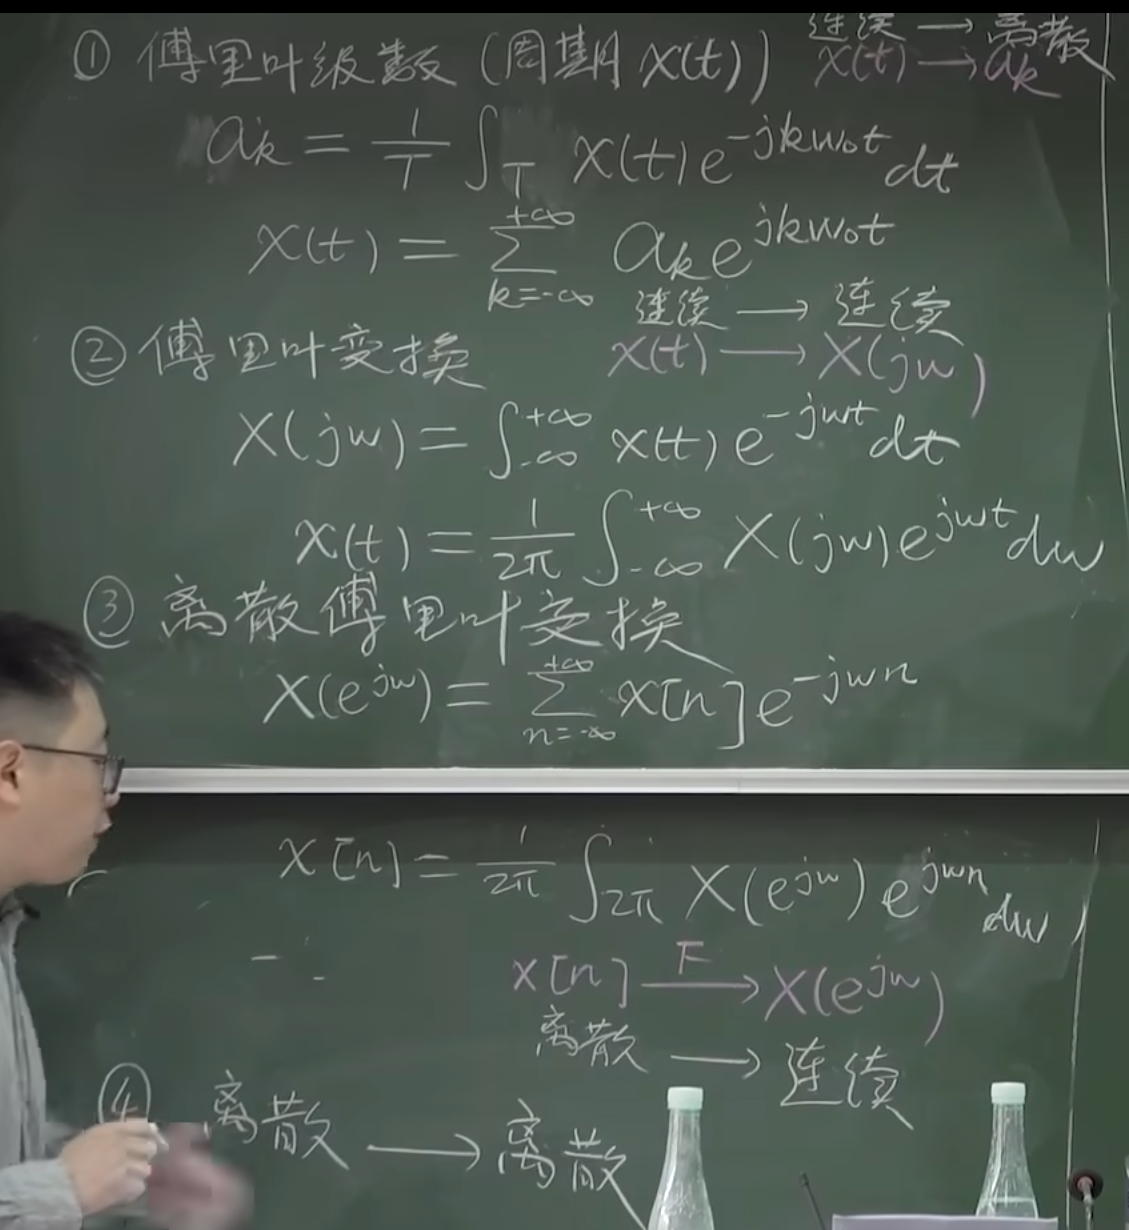 ① 傅里叶级数 (周期 x(t)) 连续 → 离散
x(t) → aₖ
aₖ = 1/T ∫_T x(t) e^{-jkw₀t} dt
x(t) = ∑_{k=-∞}^{+∞} aₖ e^{jkw₀t}
连续 → 连续
② 傅里叶变换 x(t) → X(jw)
X(jw) = ∫_{-∞}^{+∞} x(t) e^{-jwt} dt
x(t) = 1/2π ∫_{-∞}^{+∞} X(jw) e^{jwt} dw
③ 离散傅里叶变换
X(e^{jw}) = ∑_{n=-∞}^{+∞} x[n] e^{-jwn}
x[n] = 1/2π ∫_{2π} X(e^{jw}) e^{jwn} dw
x[n] F→ X(e^{jw})
离散 → 连续
④ 离散 → 离散